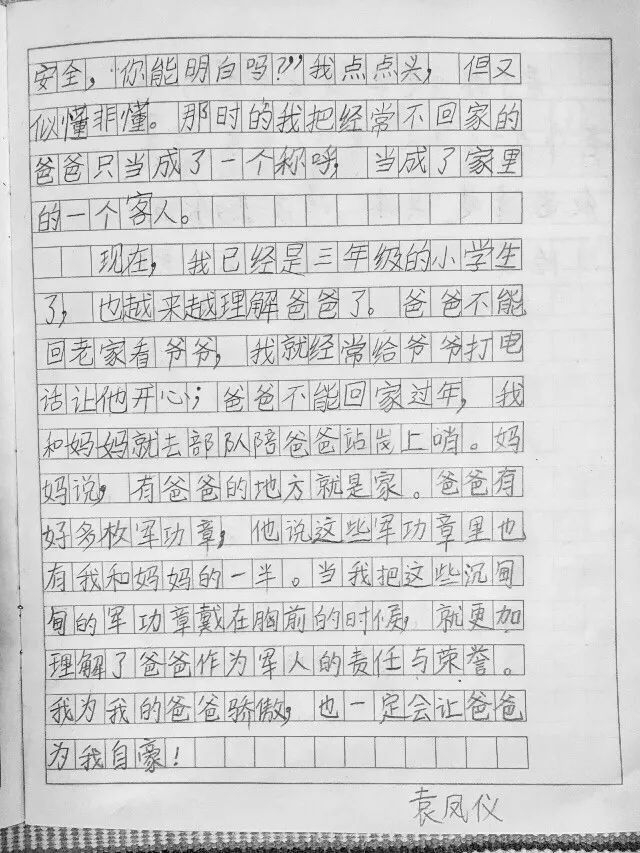 安全，你能明白吗？”我点点头，但又
似懂非懂。那时的我把经常不回家的
爸爸只当成了一个称呼，当成了家里
的一个客人。
现在，我已经是三年级的小学生
了，也越来越理解爸爸了。爸爸不能
回老家看爷爷，我就经常给爷爷打电
话让他开心；爸爸不能回家过年，我
和妈妈就去部队陪爸爸站岗上哨。妈
妈说，有爸爸的地方就是家。爸爸有
好多枚军功章，他说这些军功章里也
有我和妈妈的一半。当我把这些沉甸
甸的军功章戴在胸前的时候，就更加
理解了爸爸作为军人的责任与荣誉。
我为我的爸爸骄傲，也一定会让爸爸
为我自豪！
袁凤仪